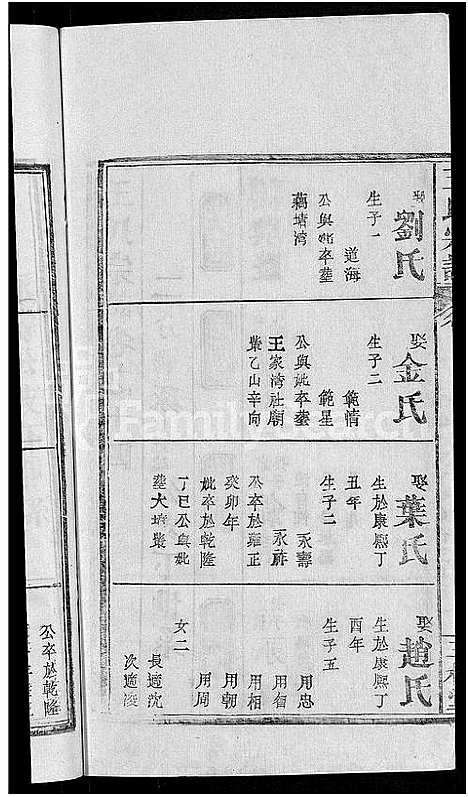 娶劉氏
生子一
道海
公與妣卒塟
藕塘湾
娶金氏
生子二
範情
範星
公與妣卒塟
王家湾社廟
業乙山辛向
娶葉氏
生於康熙丁
丑年
生子二
永壽
永祚
公卒於雍正
癸卯年
妣卒於乾隆
丁巳公與妣
塟大塘業
娶趙氏
生於康熙丁
酉年
生子五
用忠
用智
用相
用朝
用周
女二
長適沈
次適凌
公卒於乾隆
FamilySearch